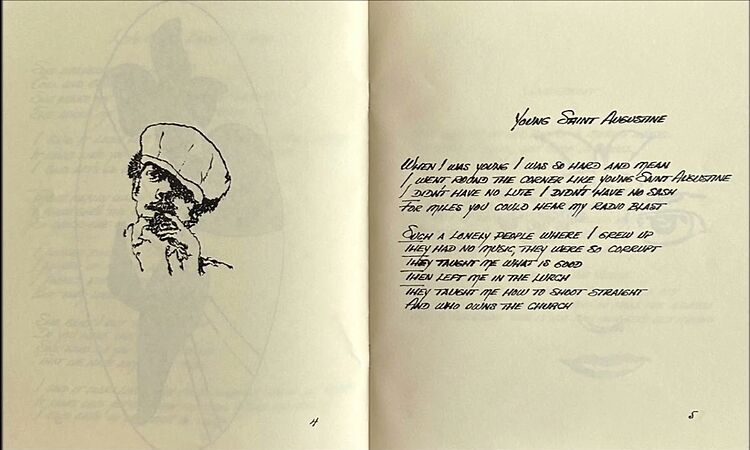 4
Young Saint Augustine
When I was young I was so hard and mean
I went round the corner like young Saint Augustine
I didn't have no lute I didn't have no sash
For miles you could hear my radio blast
Such a lonely people where I grew up
They had no music, they were so corrupt
They taught me what is good
Then left me in the lurch
They taught me how to shoot straight
And who owns the church
5